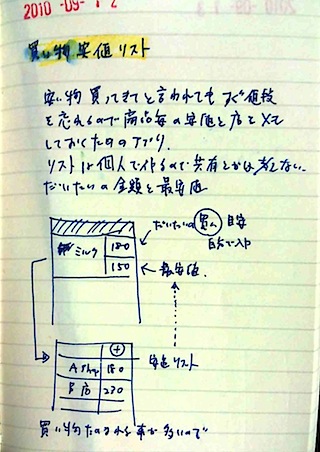 2010-09-12
買い物 安値リスト
安い物 買ってきてと言われても すぐ値段
を忘れるので商品毎の安値と店とメモ
しておくためのアプリ.
リストは個人で作るので共有とかは考えない.
だいたいの金額と最安値
ミルク 180
150
だいたいの 買う 目安
自分で入力
← 最安値.
+
A shop 150
B店 230
安値リスト
買い物たのまれる事が多いので